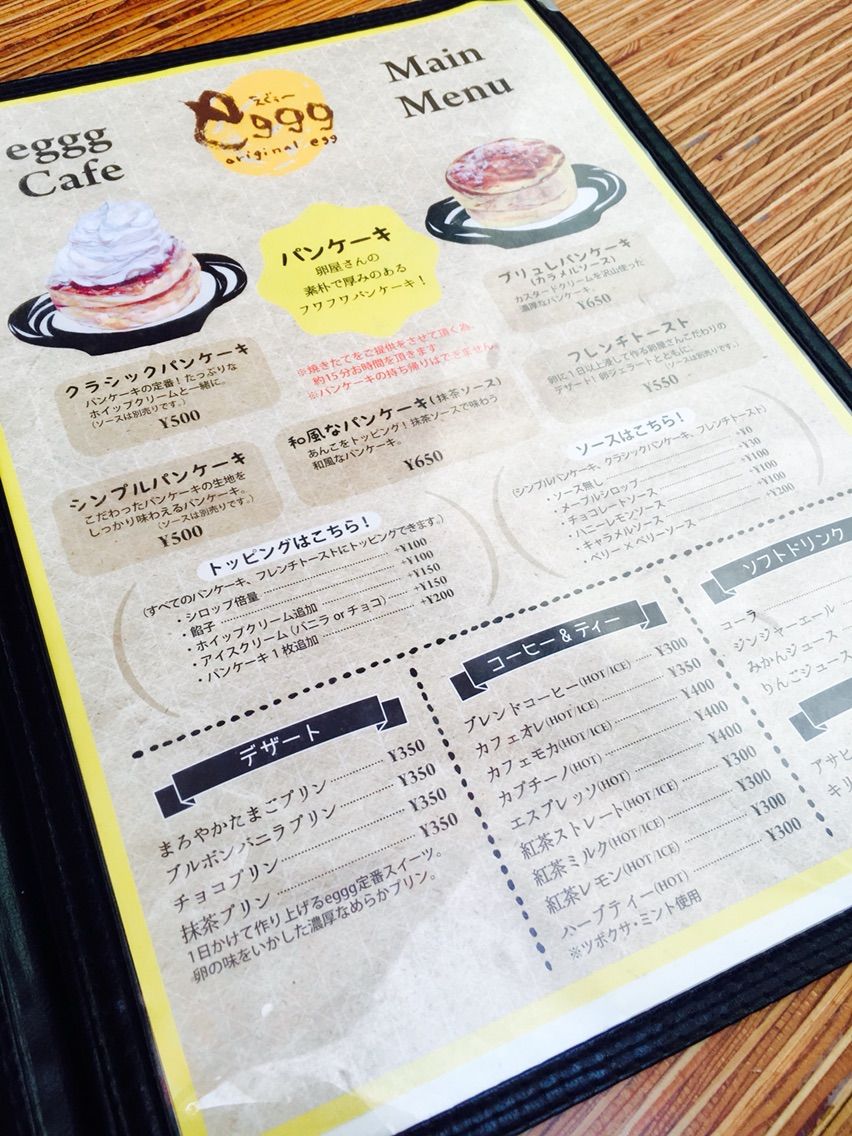 eggg
Cafe
えぐぅー
eggg
original egg
Main
Menu
パンケーキ
卵屋さんの
素朴で厚みのある
フワフワパンケーキ！
※焼きたてをご提供をさせて頂く為、
約15分お時間を頂きます
※パンケーキの持ち帰りはできません。
クラシックパンケーキ
パンケーキの定番！たっぷりな
ホイップクリームと一緒に。
(ソースは別売りです。)
¥500
ブリュレパンケーキ
(カラメルソース)
カスタードクリームを沢山使った
濃厚なパンケーキ。
¥650
シンプルパンケーキ
こだわったパンケーキの生地を
しっかり味わえるパンケーキ。
(ソースは別売りです。)
¥500
和風なパンケーキ(抹茶ソース)
あんこをトッピング！抹茶ソースで味わう
和風なパンケーキ。
¥650
フレンチトースト
卵に1日以上浸して作る卵屋さんこだわりの
デザート！卵ジェラートとともに。
(ソースは別売りです。)
¥550
トッピングはこちら！
(すべてのパンケーキ、フレンチトーストにトッピングできます。)
・シロップ倍量 +¥100
・餡子 +¥100
・ホイップクリーム追加 +¥150
・アイスクリーム(バニラ or チョコ) +¥150
・パンケーキ1枚追加 +¥200
ソースはこちら！
(シンプルパンケーキ、クラシックパンケーキ、フレンチトースト)
・ソース無し +¥0
・メープルシロップ +¥30
・チョコレートソース +¥100
・ハニーレモンソース +¥100
・キャラメルソース +¥100
・ベリー×ベリーソース +¥200
デザート
まろやかたまごプリン ¥350
ブルボンバニラプリン ¥350
チョコプリン ¥350
抹茶プリン ¥350
1日かけて作り上げるeggg定番スイーツ。
卵の味をいかした濃厚なめらかプリン。
コーヒー＆ティー
ブレンドコーヒー(HOT/ICE) ¥300
カフェオレ(HOT/ICE) ¥350
カフェモカ(HOT/ICE) ¥400
カプチーノ(HOT) ¥400
エスプレッソ(HOT) ¥300
紅茶ストレート(HOT/ICE) ¥300
紅茶ミルク(HOT/ICE) ¥300
紅茶レモン(HOT/ICE) ¥300
ハーブティー(HOT)
※ツボクサ・ミント使用
ソフトドリンク
コーラ
ジンジャーエール
みかんジュース
りんごジュース
アサヒ
キリ